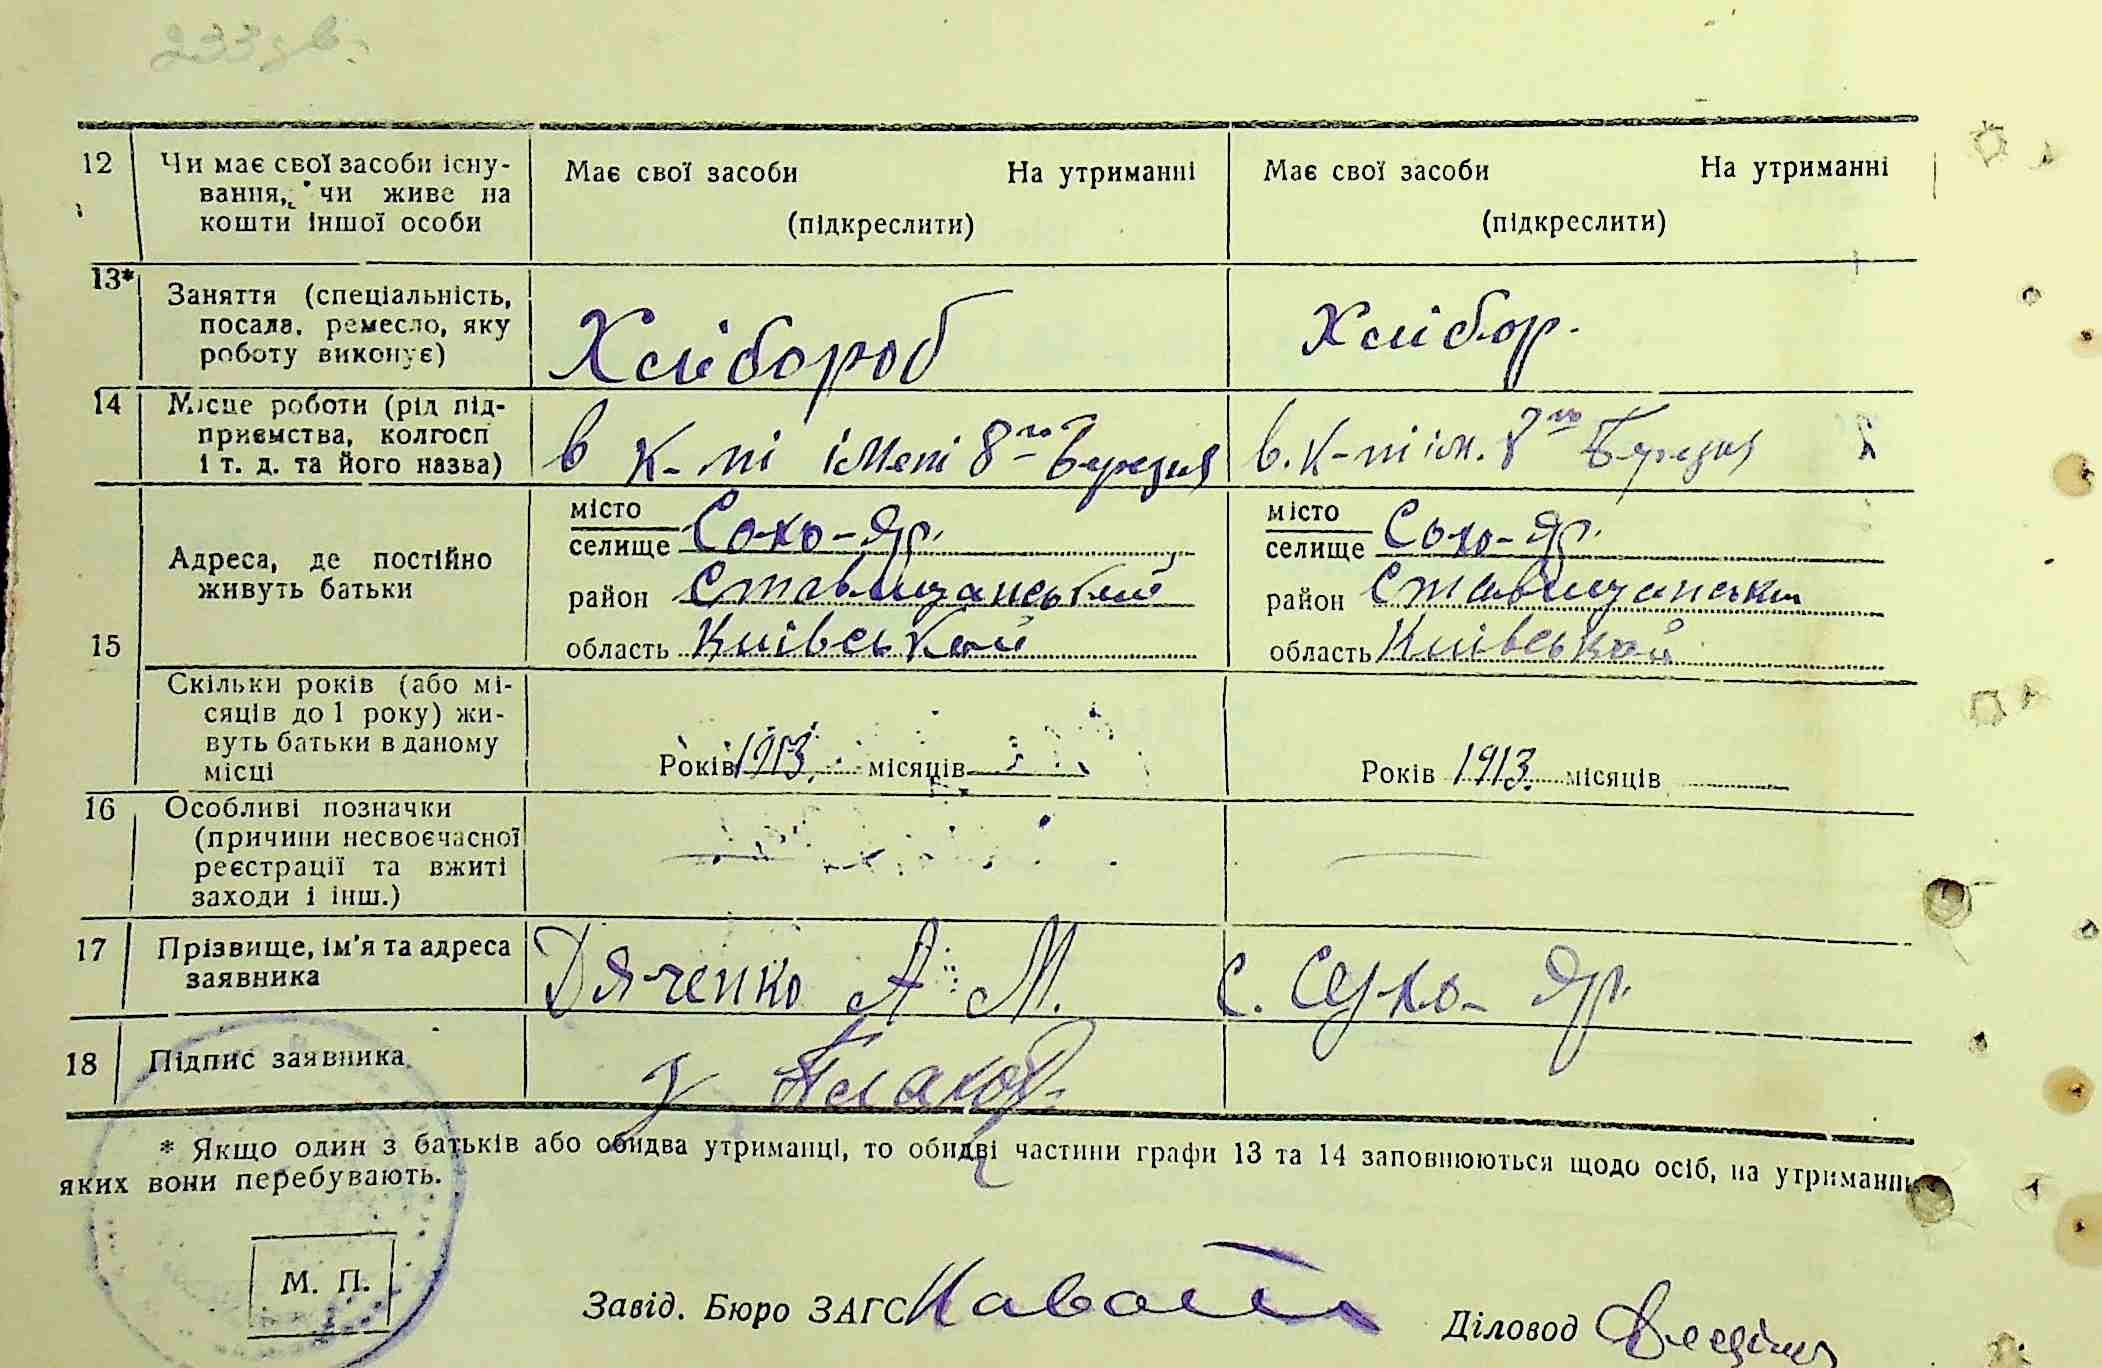 233 зв.
12 Чи має свої засоби існу- Має свої засоби На утриманні Має свої засоби На утриманні
вання, чи живе на
кошти іншої особи (підкреслити) (підкреслити)
13* Заняття (спеціальність,
посада, ремесло, яку Хлібороб Хлібор.
роботу виконує)
14 Місце роботи (рід під-
приємства, колгосп в к-пі імені 8го Березня в. к-пі ім. 8го Березня
і т. д. та його назва)
15 Адреса, де постійно
живуть батьки
місто
селище Сохо-Яр.
район Ставищанський
область Київської
місто
селище Сохо-Яр.
район Ставищанськи
область Київської
Скільки років (або мі-
сяців до 1 року) жи-
вуть батьки в даному
місці
Років 1913. місяців Років 1913. місяців
16 Особливі позначки
(причини несвоєчасної
реєстрації та вжиті
заходи і інш.)
17 Прізвище, ім'я та адреса
заявника Дяченко А М. с. Сухо-Яр.
18 Підпис заявника
* Якщо один з батьків або обидва утриманці, то обидві частини графи 13 та 14 заповнюються щодо осіб, на утриманні
яких вони перебувають.
М. П.
Завід. Бюро ЗАГС
Діловод